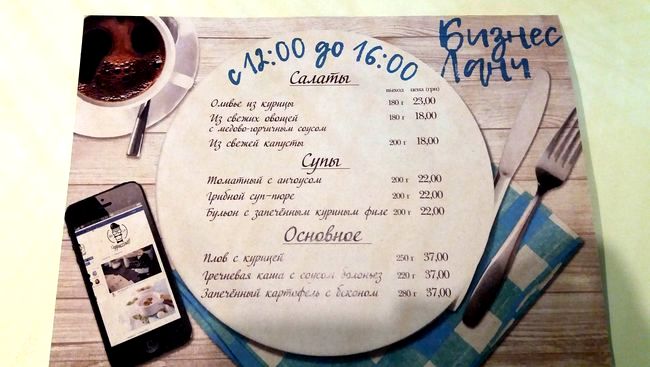 Бизнес
Ланч
с 12:00 до 16:00
Салаты
выход цена (грн)
Оливье из курицы 180 г 23,00
Из свежих овощей 180 г 18,00
с медово-горчичным соусом
Из свежей капусты 200 г 18,00
Супы
Томатный с анчоусом 200 г 22,00
Грибной суп-пюре 200 г 22,00
Бульон с запечённым куриным филе 200 г 22,00
Основное
Плов с курицей 250 г 37,00
Гречневая каша с соусом болоньез 220 г 37,00
Запечённый картофель с беконом 280 г 37,00